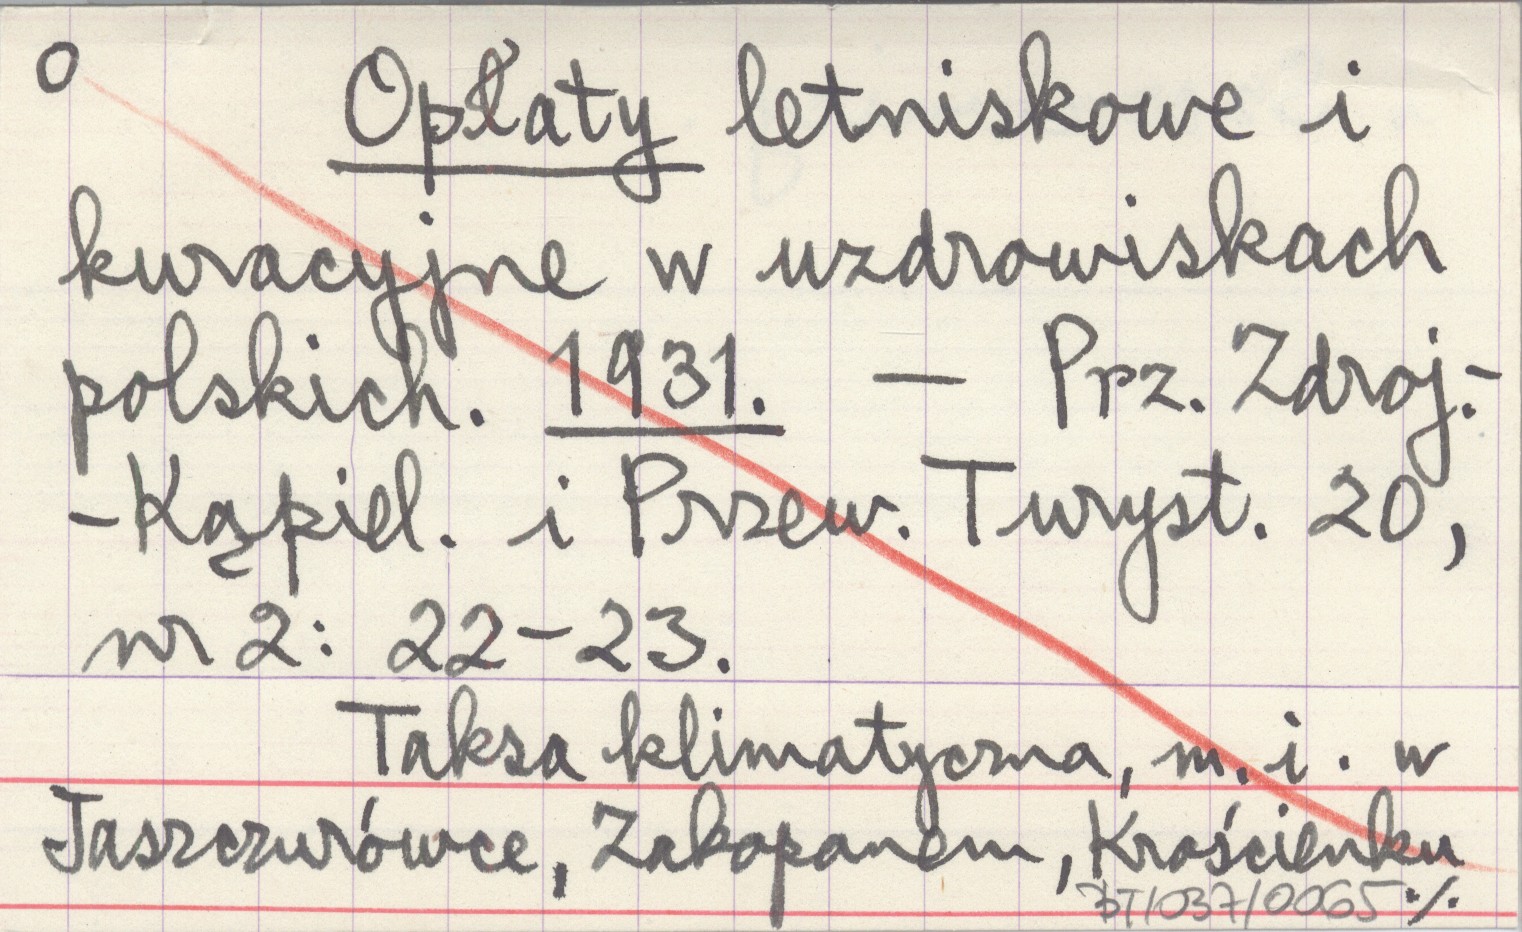 o Opłaty letniskowe i
kuracyjne w uzdrowiskach
polskich. 1931. — Prz. Zdroj.-
-Kąpiel. i Przew. Turyst. 20,
nr 2: 22-23.
Taksa klimatyczna, m. i. w
Jaszczurówce, Zakopanem, Krościenku
BT/037/0065 ./.